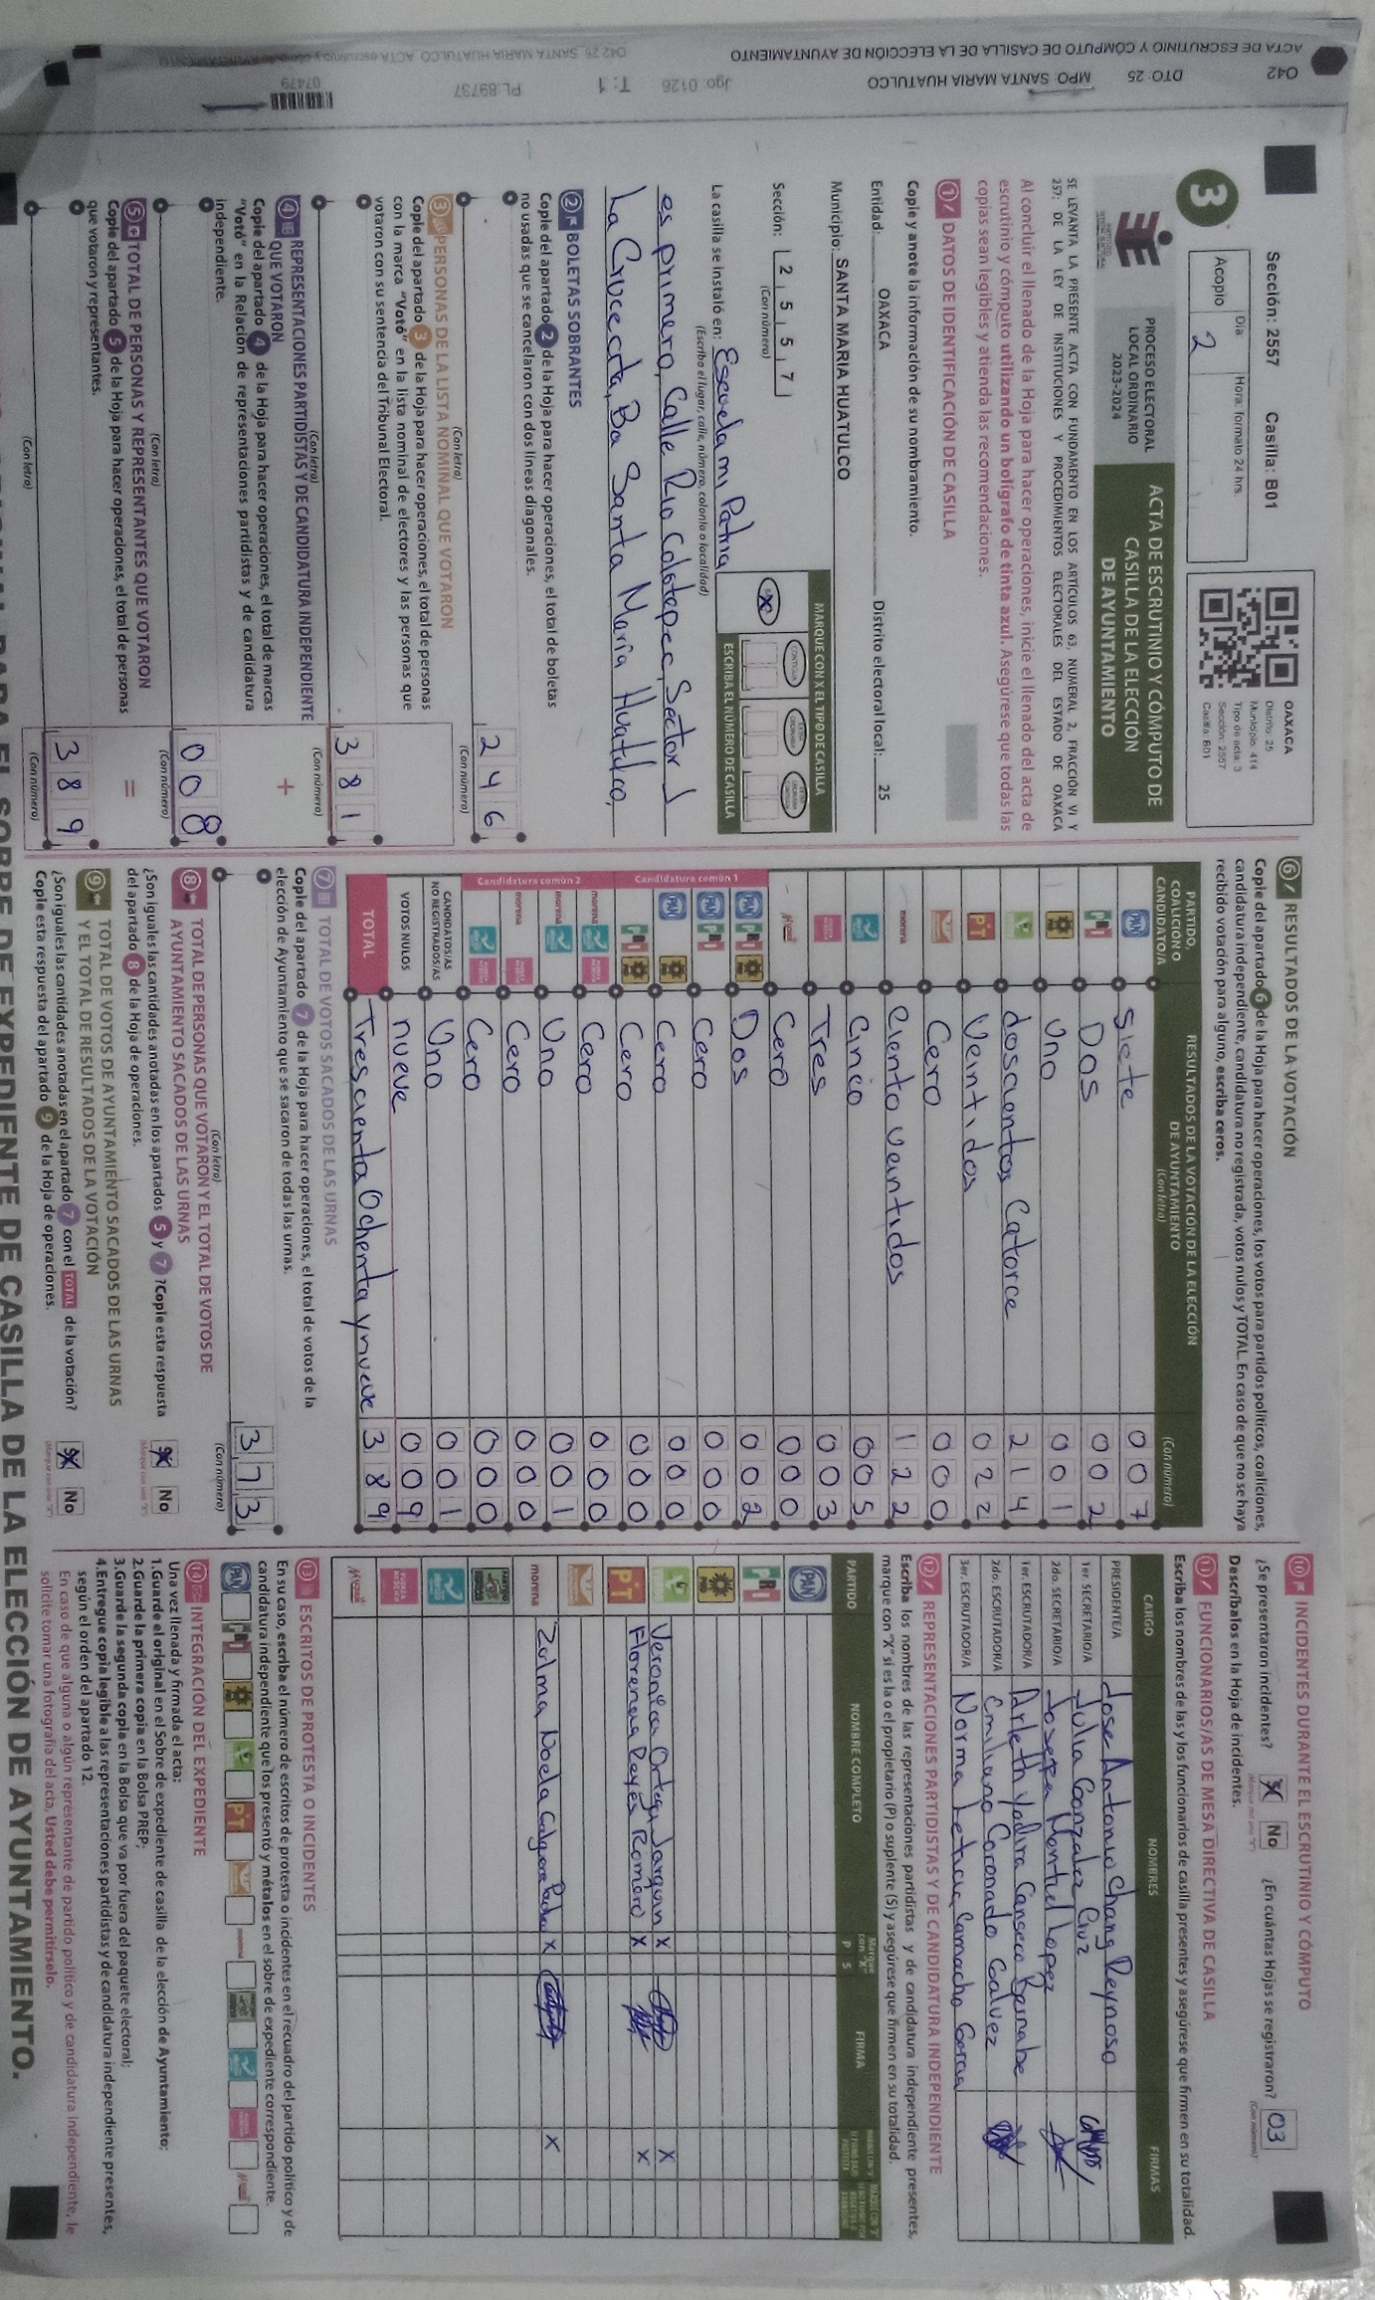 Sección: 2557 Casilla: B01
3
Acopio
Día
Hora: formato 24 hrs.
2
OAXACA
Distrito: 25
Municipio: 414
Tipo de acta: 3
Sección: 2557
Casilla: B01
PROCESO ELECTORAL
LOCAL ORDINARIO
2023-2024
ACTA DE ESCRUTINIO Y CÓMPUTO DE
CASILLA DE LA ELECCIÓN
DE AYUNTAMIENTO
SE LEVANTA LA PRESENTE ACTA CON FUNDAMENTO EN LOS ARTÍCULOS 63, NUMERAL 2, FRACCIÓN VI Y
257; DE LA LEY DE INSTITUCIONES Y PROCEDIMIENTOS ELECTORALES DEL ESTADO DE OAXACA
Al concluir el llenado de la Hoja para hacer operaciones, inicie el llenado del acta de
escrutinio y cómputo utilizando un bolígrafo de tinta azul. Asegúrese que todas las
copias sean legibles y atienda las recomendaciones.
1 DATOS DE IDENTIFICACIÓN DE CASILLA
Copie y anote la información de su nombramiento.
Entidad: OAXACA Distrito electoral local: 25
Municipio: SANTA MARIA HUATULCO
Sección: 2 5 5 7
(Con número)
MARQUE CON X EL TIPO DE CASILLA
ESCRIBA EL NÚMERO DE CASILLA
La casilla se instaló en: Escuela mi Patria
(Escriba el lugar, calle, número, colonia o localidad)
es primero, Calle Rio Colotepec, Sector J
La Crucecita, Ba Santa María Huatulco,
2 BOLETAS SOBRANTES
Copie del apartado 2 de la Hoja para hacer operaciones, el total de boletas
no usadas que se cancelaron con dos líneas diagonales.
2 4 6
(Con letra) (Con número)
3 PERSONAS DE LA LISTA NOMINAL QUE VOTARON
Copie del apartado 3 de la Hoja para hacer operaciones, el total de personas
con la marca "Votó" en la lista nominal de electores y las personas que
votaron con su sentencia del Tribunal Electoral.
3 8 1
(Con letra) (Con número)
4 REPRESENTACIONES PARTIDISTAS Y DE CANDIDATURA INDEPENDIENTE
QUE VOTARON
Copie del apartado 4 de la Hoja para hacer operaciones, el total de marcas
"Votó" en la Relación de representaciones partidistas y de candidatura
independiente.
+
0 0 8
(Con letra) (Con número)
5 TOTAL DE PERSONAS Y REPRESENTANTES QUE VOTARON
Copie del apartado 5 de la Hoja para hacer operaciones, el total de personas
que votaron y representantes.
=
3 8 9
(Con letra) (Con número)
6 RESULTADOS DE LA VOTACIÓN
Copie del apartado 6 de la Hoja para hacer operaciones, los votos para partidos políticos, coaliciones,
candidatura independiente, candidatura no registrada, votos nulos y TOTAL. En caso de que no se haya
recibido votación para alguno, escriba ceros.
PARTIDO,
COALICIÓN O
CANDIDATO/A
RESULTADOS DE LA VOTACIÓN DE LA ELECCIÓN
DE AYUNTAMIENTO
(Con letra) (Con número)
PAN siete 0 0 7
PRI Dos 0 0 2
Uno 0 0 1
doscientos Catorce 2 1 4
PT Veintidos 0 2 2
Cero 0 0 0
morena Ciento veintidos 1 2 2
Cinco 0 0 5
Tres 0 0 3
Cero 0 0 0
Candidatura común 1
PAN PRI Dos 0 0 2
PAN PRI Cero 0 0 0
PAN Cero 0 0 0
PRI Cero 0 0 0
Candidatura común 2
morena Cero 0 0 0
morena Uno 0 0 1
morena Cero 0 0 0
Cero 0 0 0
CANDIDATOS/AS
NO REGISTRADOS/AS Uno 0 0 1
VOTOS NULOS nueve 0 0 9
TOTAL Trescienta Ochenta y nueve 3 8 9
7 TOTAL DE VOTOS SACADOS DE LAS URNAS
Copie del apartado 7 de la Hoja para hacer operaciones, el total de votos de la
elección de Ayuntamiento que se sacaron de todas las urnas.
3 7 3
(Con letra) (Con número)
8 TOTAL DE PERSONAS QUE VOTARON Y EL TOTAL DE VOTOS DE
AYUNTAMIENTO SACADOS DE LAS URNAS
¿Son iguales las cantidades anotadas en los apartados 5 y 7 ? Copie esta respuesta
del apartado 8 de la Hoja de operaciones.
No
9 TOTAL DE VOTOS DE AYUNTAMIENTO SACADOS DE LAS URNAS
Y EL TOTAL DE RESULTADOS DE LA VOTACIÓN
¿Son iguales las cantidades anotadas en el apartado 7 con el TOTAL de la votación?
Copie esta respuesta del apartado 9 de la Hoja de operaciones.
No
10 INCIDENTES DURANTE EL ESCRUTINIO Y CÓMPUTO
¿Se presentaron incidentes? No ¿En cuántas Hojas se registraron? 03
Descríbalos en la Hoja de incidentes. (Con número)
11 FUNCIONARIOS/AS DE MESA DIRECTIVA DE CASILLA
Escriba los nombres de las y los funcionarios de casilla presentes y asegúrese que firmen en su totalidad.
CARGO NOMBRES FIRMAS
PRESIDENTE/A Jose Antonio Chang Reynoso
1er. SECRETARIO/A Julia Gonzalez Cruz
2do. SECRETARIO/A Josefa Montiel Lopez
1er. ESCRUTADOR/A Arleth Yadira Canseco Bernabe
2do. ESCRUTADOR/A Emiliano Coronado Galvez
3er. ESCRUTADOR/A Norma Leticia Camacho Garcia
12 REPRESENTACIONES PARTIDISTAS Y DE CANDIDATURA INDEPENDIENTE
Escriba los nombres de las representaciones partidistas y de candidatura independiente presentes,
marque con "X" si es la o el propietario (P) o suplente (S) y asegúrese que firmen en su totalidad.
PARTIDO NOMBRE COMPLETO Marque con "X" P S FIRMA
PAN
PRI
PRD
Veronica Ortega Jarquin X X
PT Florencia Reyes Romero X X
morena Zulma Noela X X
13 ESCRITOS DE PROTESTA O INCIDENTES
En su caso, escriba el número de escritos de protesta o incidentes en el recuadro del partido político y de
candidatura independiente que los presentó y métalos en el sobre de expediente correspondiente.
PAN PRI PT morena
14 INTEGRACIÓN DEL EXPEDIENTE
Una vez llenada y firmada el acta:
1.Guarde el original en el Sobre de expediente de casilla de la elección de Ayuntamiento;
2.Guarde la primera copia en la Bolsa PREP;
3.Guarde la segunda copia en la Bolsa que va por fuera del paquete electoral;
4.Entregue copia legible a las representaciones partidistas y de candidatura independiente presentes,
según el orden del apartado 12.
En caso de que alguna o algún representante de partido político y de candidatura independiente, le
solicite tomar una fotografía del acta, Usted debe permitírselo.
EL SOBRE DE EXPEDIENTE DE CASILLA DE LA ELECCIÓN DE AYUNTAMIENTO.
042 DTO: 25 MPO: SANTA MARIA HUATULCO Jgo: 0126 T: 1 PL:89737 07479
ACTA DE ESCRUTINIO Y CÓMPUTO DE CASILLA DE LA ELECCIÓN DE AYUNTAMIENTO